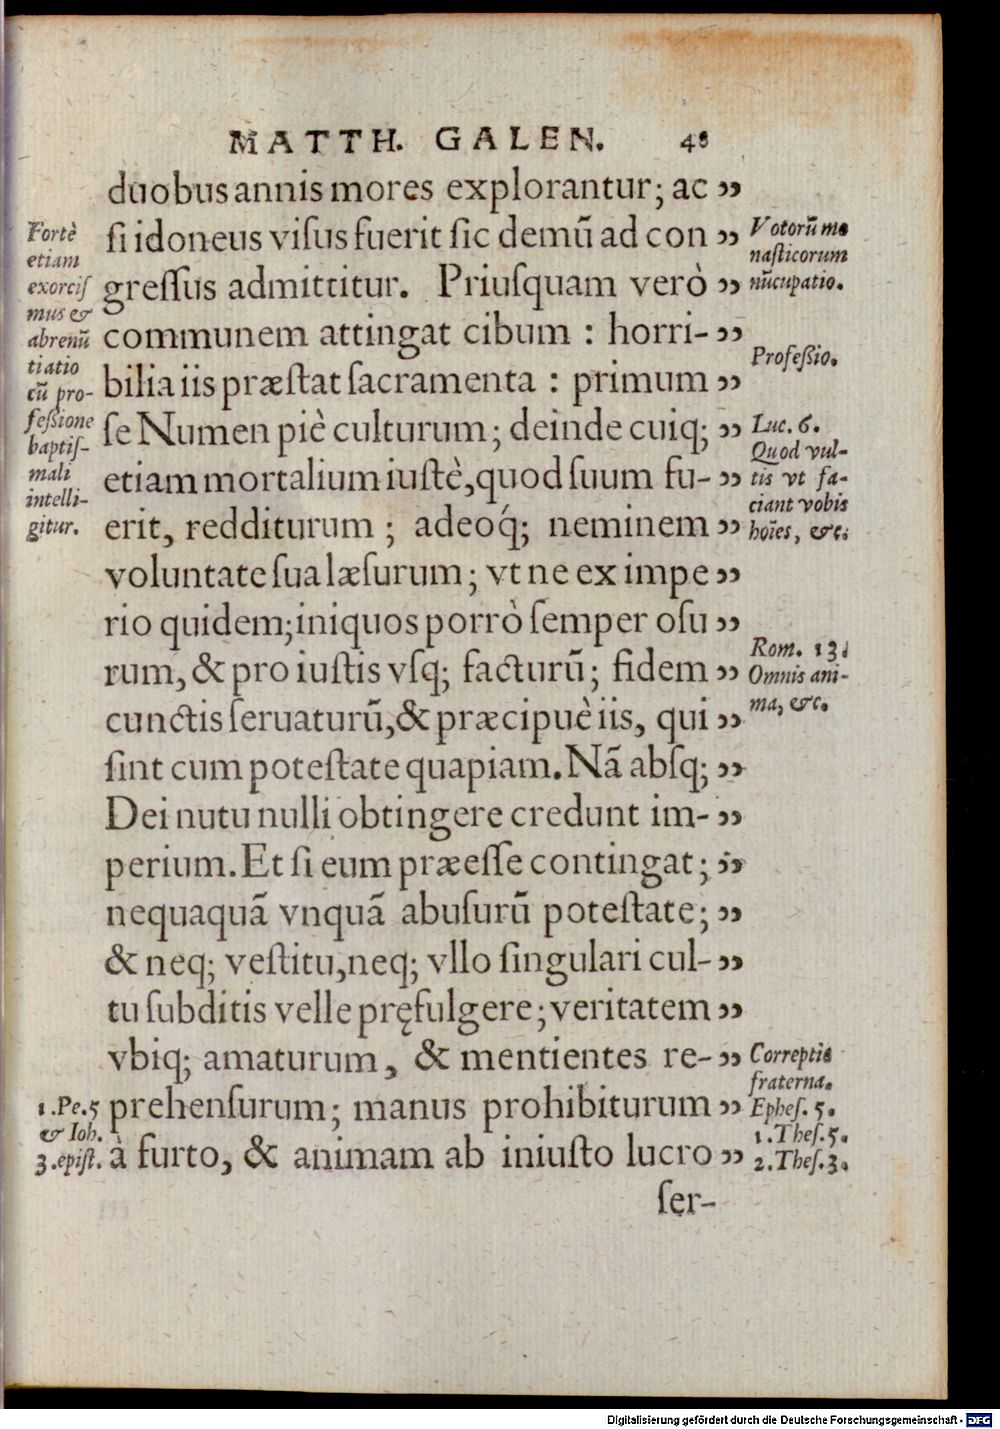 MATTH. GALEN. 48
duobus annis mores explorantur; ac ”
ſi idoneus viſus fuerit ſic demū ad con ”
greſſus admittitur. Priuſquam verò ”
communem attingat cibum : horri- ”
bilia iis præſtat ſacramenta : primum ”
ſe Numen piè culturum; deinde cuiq; ”
etiam mortalium iuſtè, quod ſuum fu- ”
erit, redditurum ; adeoq́; neminem ”
voluntate ſua læſurum; vt ne ex impe ”
rio quidem; iniquos porrò ſemper oſu ”
rum, & pro iuſtis vſq; facturū; fidem ”
cunctis ſeruaturū, & præcipuè iis, qui ”
ſint cum poteſtate quapiam. Nā abſq; ”
Dei nutu nulli obtingere credunt im- ”
perium. Et ſi eum præeſſe contingat; ”
nequaquā vnquā abuſurū poteſtate; ”
& neq; veſtitu, neq; vllo ſingulari cul- ”
tu ſubditis velle pręfulgere; veritatem ”
vbiq; amaturum, & mentientes re- ”
prehenſurum; manus prohibiturum ”
à furto, & animam ab iniuſto lucro ”
ſer-
Fortè
etiam
exorciſ
mus &
abrenū
tiatio
cū pro-
feſſione
baptiſ-
mali
intelli-
gitur.
1.Pe.5
& Ioh.
3.epiſt.
Votorū mo
naſticorum
nūcupatio.
Profeſſio.
Luc. 6.
Quod vul-
tis vt fa-
ciant vobis
hoīes, &c.
Rom. 13.
Omnis ani-
ma, &c.
Correptio
fraterna.
Epheſ. 5.
1.Theſ.5.
2.Theſ.3.
Digitalisierung gefördert durch die Deutsche Forschungsgemeinschaft - DFG